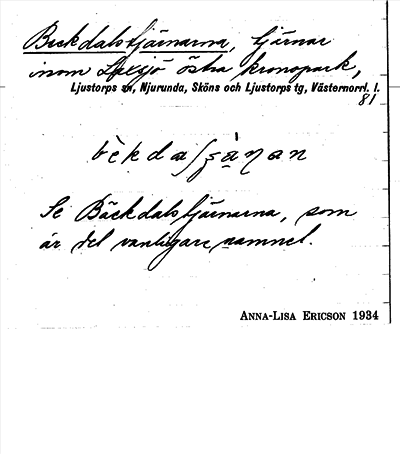 Beckdalstjärnarna, tjärnar
inom Laxsjö östra kronopark,
Ljustorps sn, Njurunda, Sköns och Ljustorps tg, Västernorrl. l.
81
Se Bäckdalstjärnarna, som
är det vanligare namnet.
ANNA-LISA ERICSON 1934